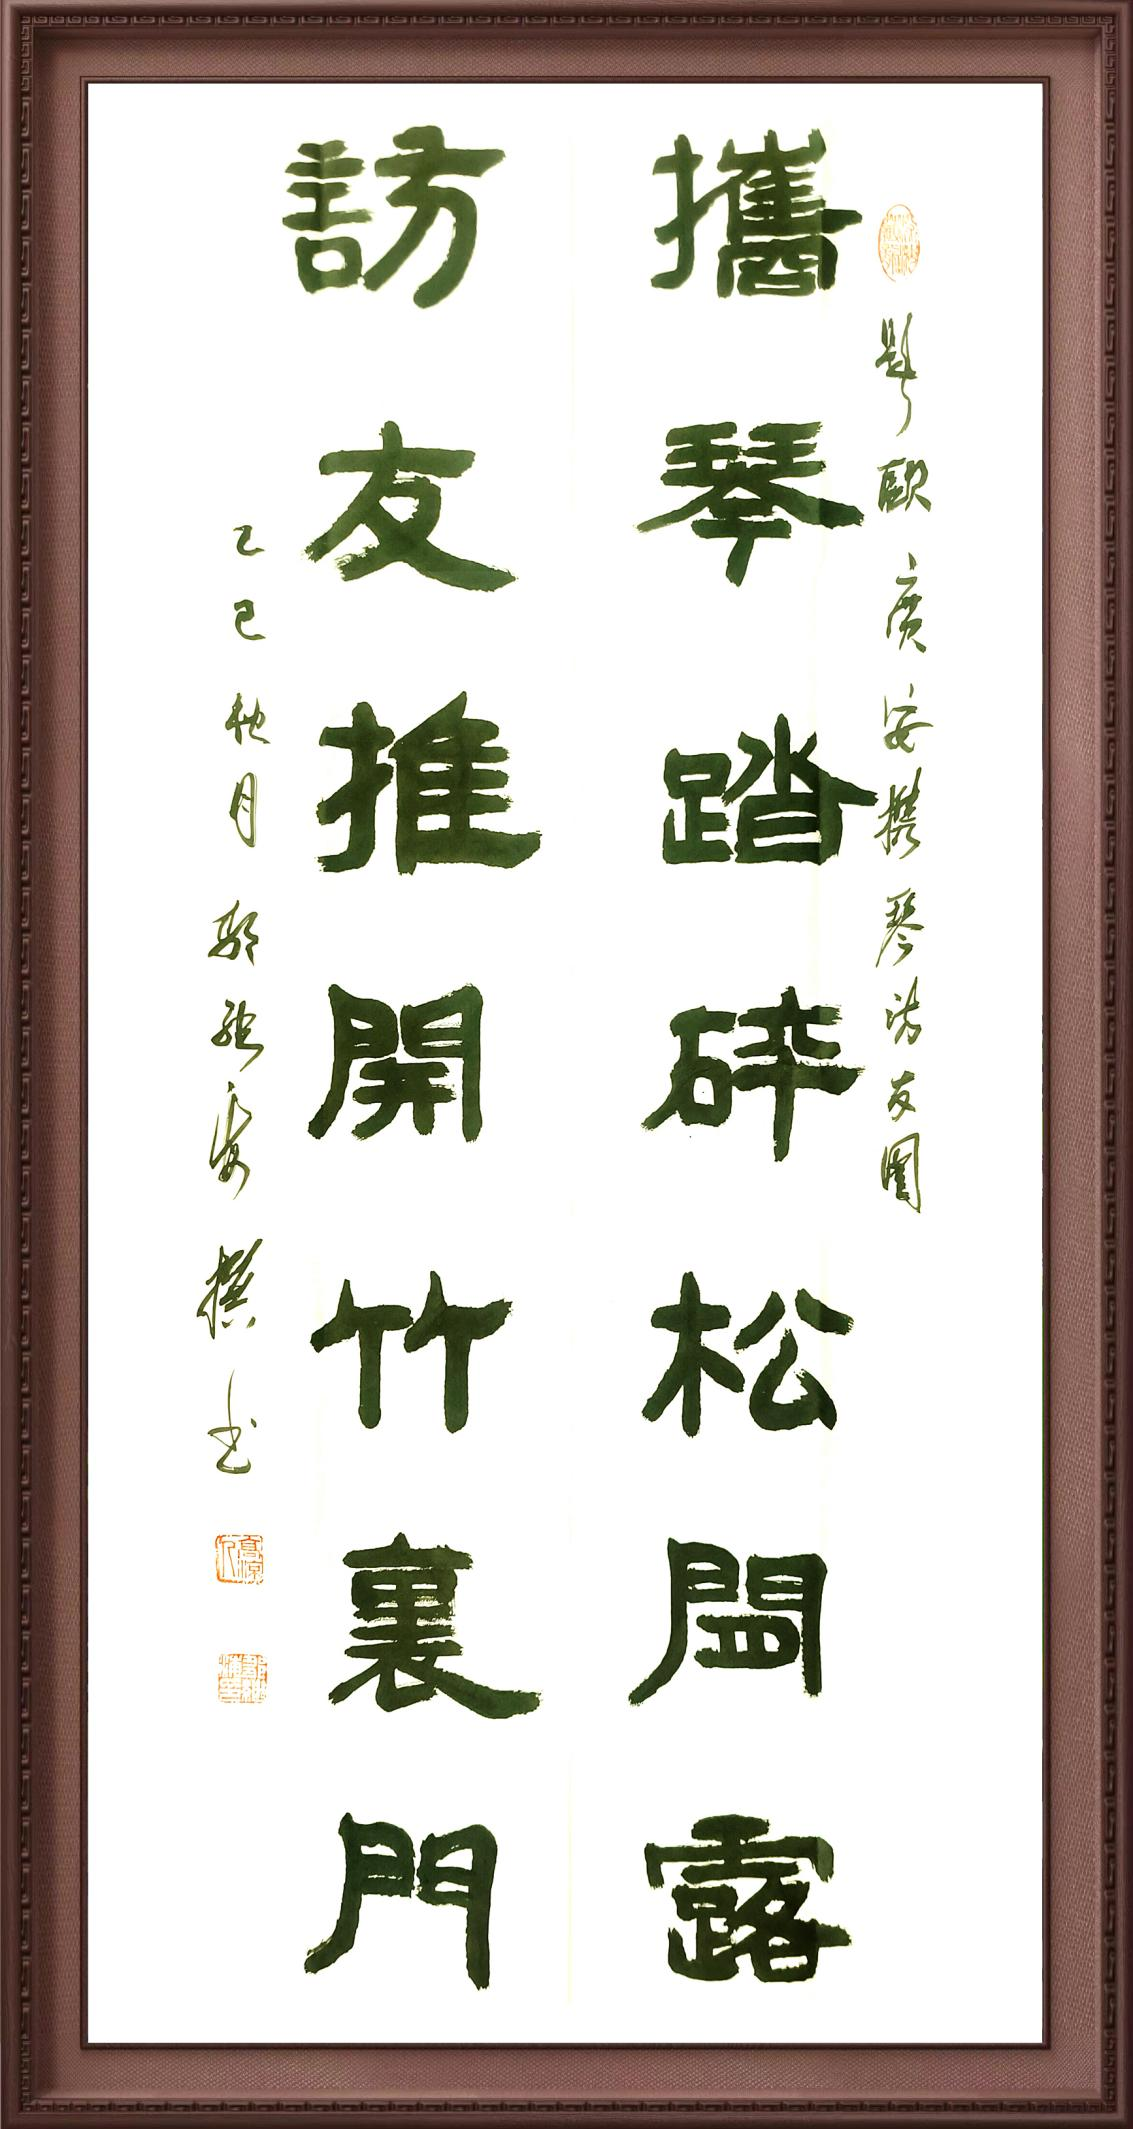 題歐廣安携琴访友圖
攜琴踏碎松間露
訪友推開竹裏門
乙巳秋月 撰书
高凉人